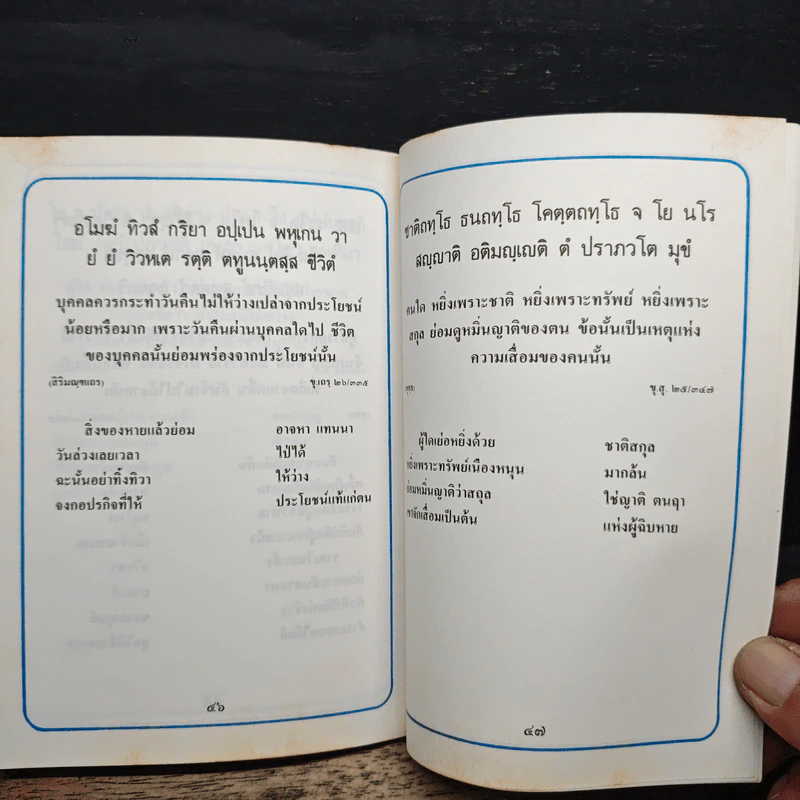 อโมฆํ ทิวสํ กริยา อปฺเปน พหุเกน วา
ยํ ยํ วิวหเต รตฺติ ตทูนนฺตสฺส ชีวิตํ
บุคคลควรกระทำวันคืนไม่ให้ว่างเปล่าจากประโยชน์
น้อยหรือมาก เพราะวันคืนผ่านบุคคลใดไป ชีวิต
ของบุคคลนั้นย่อมพร่องจากประโยชน์นั้น
(สิริมณฺฑเถร) ขุ.เถร ๒๖/๓๓๕
สิ่งของหายแล้วย่อม อาจหา แทนนา
วันล่วงเลยเวลา ไป่ได้
ฉะนั้นอย่าทิ้งทิวา ให้ว่าง
จงกอปรกิจที่ให้ ประโยชน์แท้แก่ตน
๔๖
ชาติถทฺโธ ธนถทฺโธ โคตฺตถทฺโธ จ โย นโร
สญฺญาติ อติมญฺเญติ ตํ ปราภวโต มุขํ
คนใด หยิ่งเพราะชาติ หยิ่งเพราะทรัพย์ หยิ่งเพราะ
สกุล ย่อมดูหมิ่นญาติของตน ข้อนั้นเป็นเหตุแห่ง
ความเสื่อมของคนนั้น
ขุ.สุ. ๒๕/๓๔๗
ผู้ใดเย่อหยิ่งด้วย ชาติสกุล
หยิ่งเพราะทรัพย์เนืองหนุน มากล้น
ย่อมหมิ่นญาติว่าสถุล ใช่ญาติ ตนฤา
เขาจักเสื่อมเป็นต้น แห่งผู้ฉิบหาย
๔๗